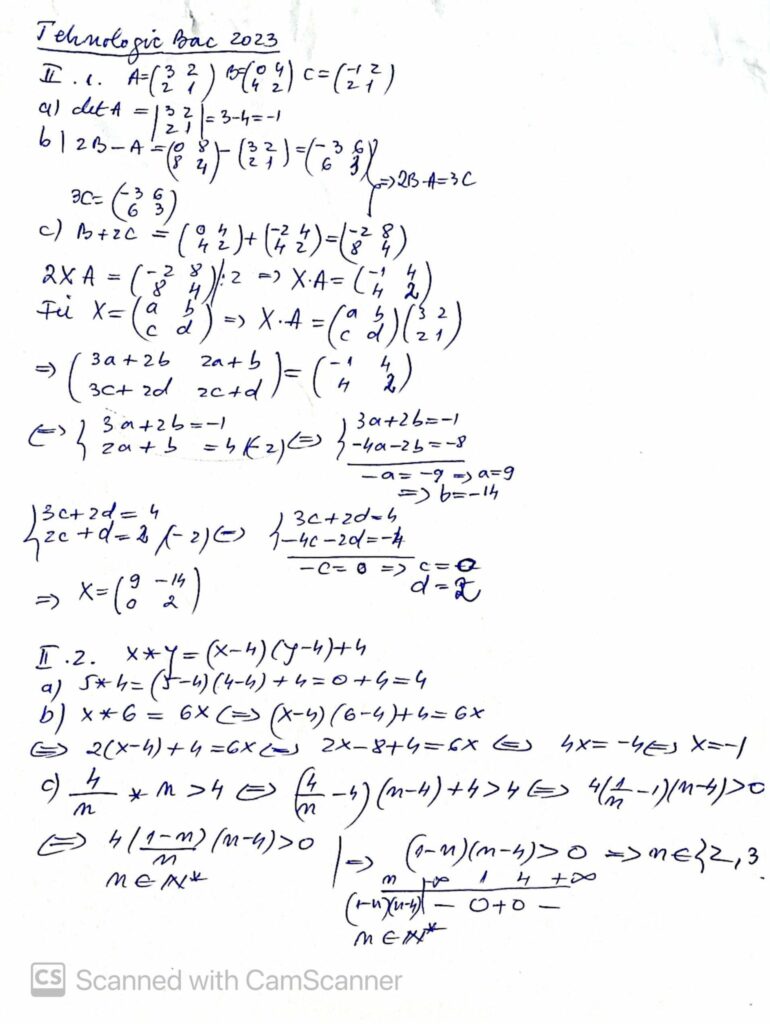 Tehnologic Bac 2023
II.1. A=(3 2 / 2 1) B=(0 4 / 4 2) C=(-1 2 / 2 1)
a) det A = |3 2 / 2 1| = 3-4=-1
b) 2B-A=(0 8 / 8 4)-(3 2 / 2 1)=(-3 6 / 6 3)
=> 2B-A=3C
3C=(-3 6 / 6 3)
c) B+2C = (0 4 / 4 2)+(-2 4 / 4 2)=(-2 8 / 8 4)
2XA = (-2 8 / 8 4)|:2 => X·A=(-1 4 / 4 2)
Fie X=(a b / c d) => X·A=(a b / c d)(3 2 / 2 1)
=> (3a+2b 2a+b / 3c+2d 2c+d)=(-1 4 / 4 2)
<=> { 3a+2b=-1 / 2a+b =4 |(-2) <=> { 3a+2b=-1 / -4a-2b=-8
-a=-9 => a=9
=> b=-14
{ 3c+2d=4 / 2c+d=2 |(-2) <=> { 3c+2d=4 / -4c-2d=-4
-c=0 => c=0
d=2
=> X=(9 -14 / 0 2)
II.2. x*y=(x-4)(y-4)+4
a) 5*4=(5-4)(4-4)+4=0+4=4
b) x*6 = 6x <=> (x-4)(6-4)+4=6x
<=> 2(x-4)+4=6x <=> 2x-8+4=6x <=> 4x=-4 <=> x=-1
c) 4/n * n >4 <=> (4/n -4)(n-4)+4>4 <=> 4(1/n -1)(n-4)>0
<=> 4(1-n)/n (n-4)>0 | => (1-n)(n-4)>0 => n∈{2,3
n∈N*
n -∞ 1 4 +∞
(1-n)(n-4) - 0 + 0 -
n∈N*
CS Scanned with CamScanner